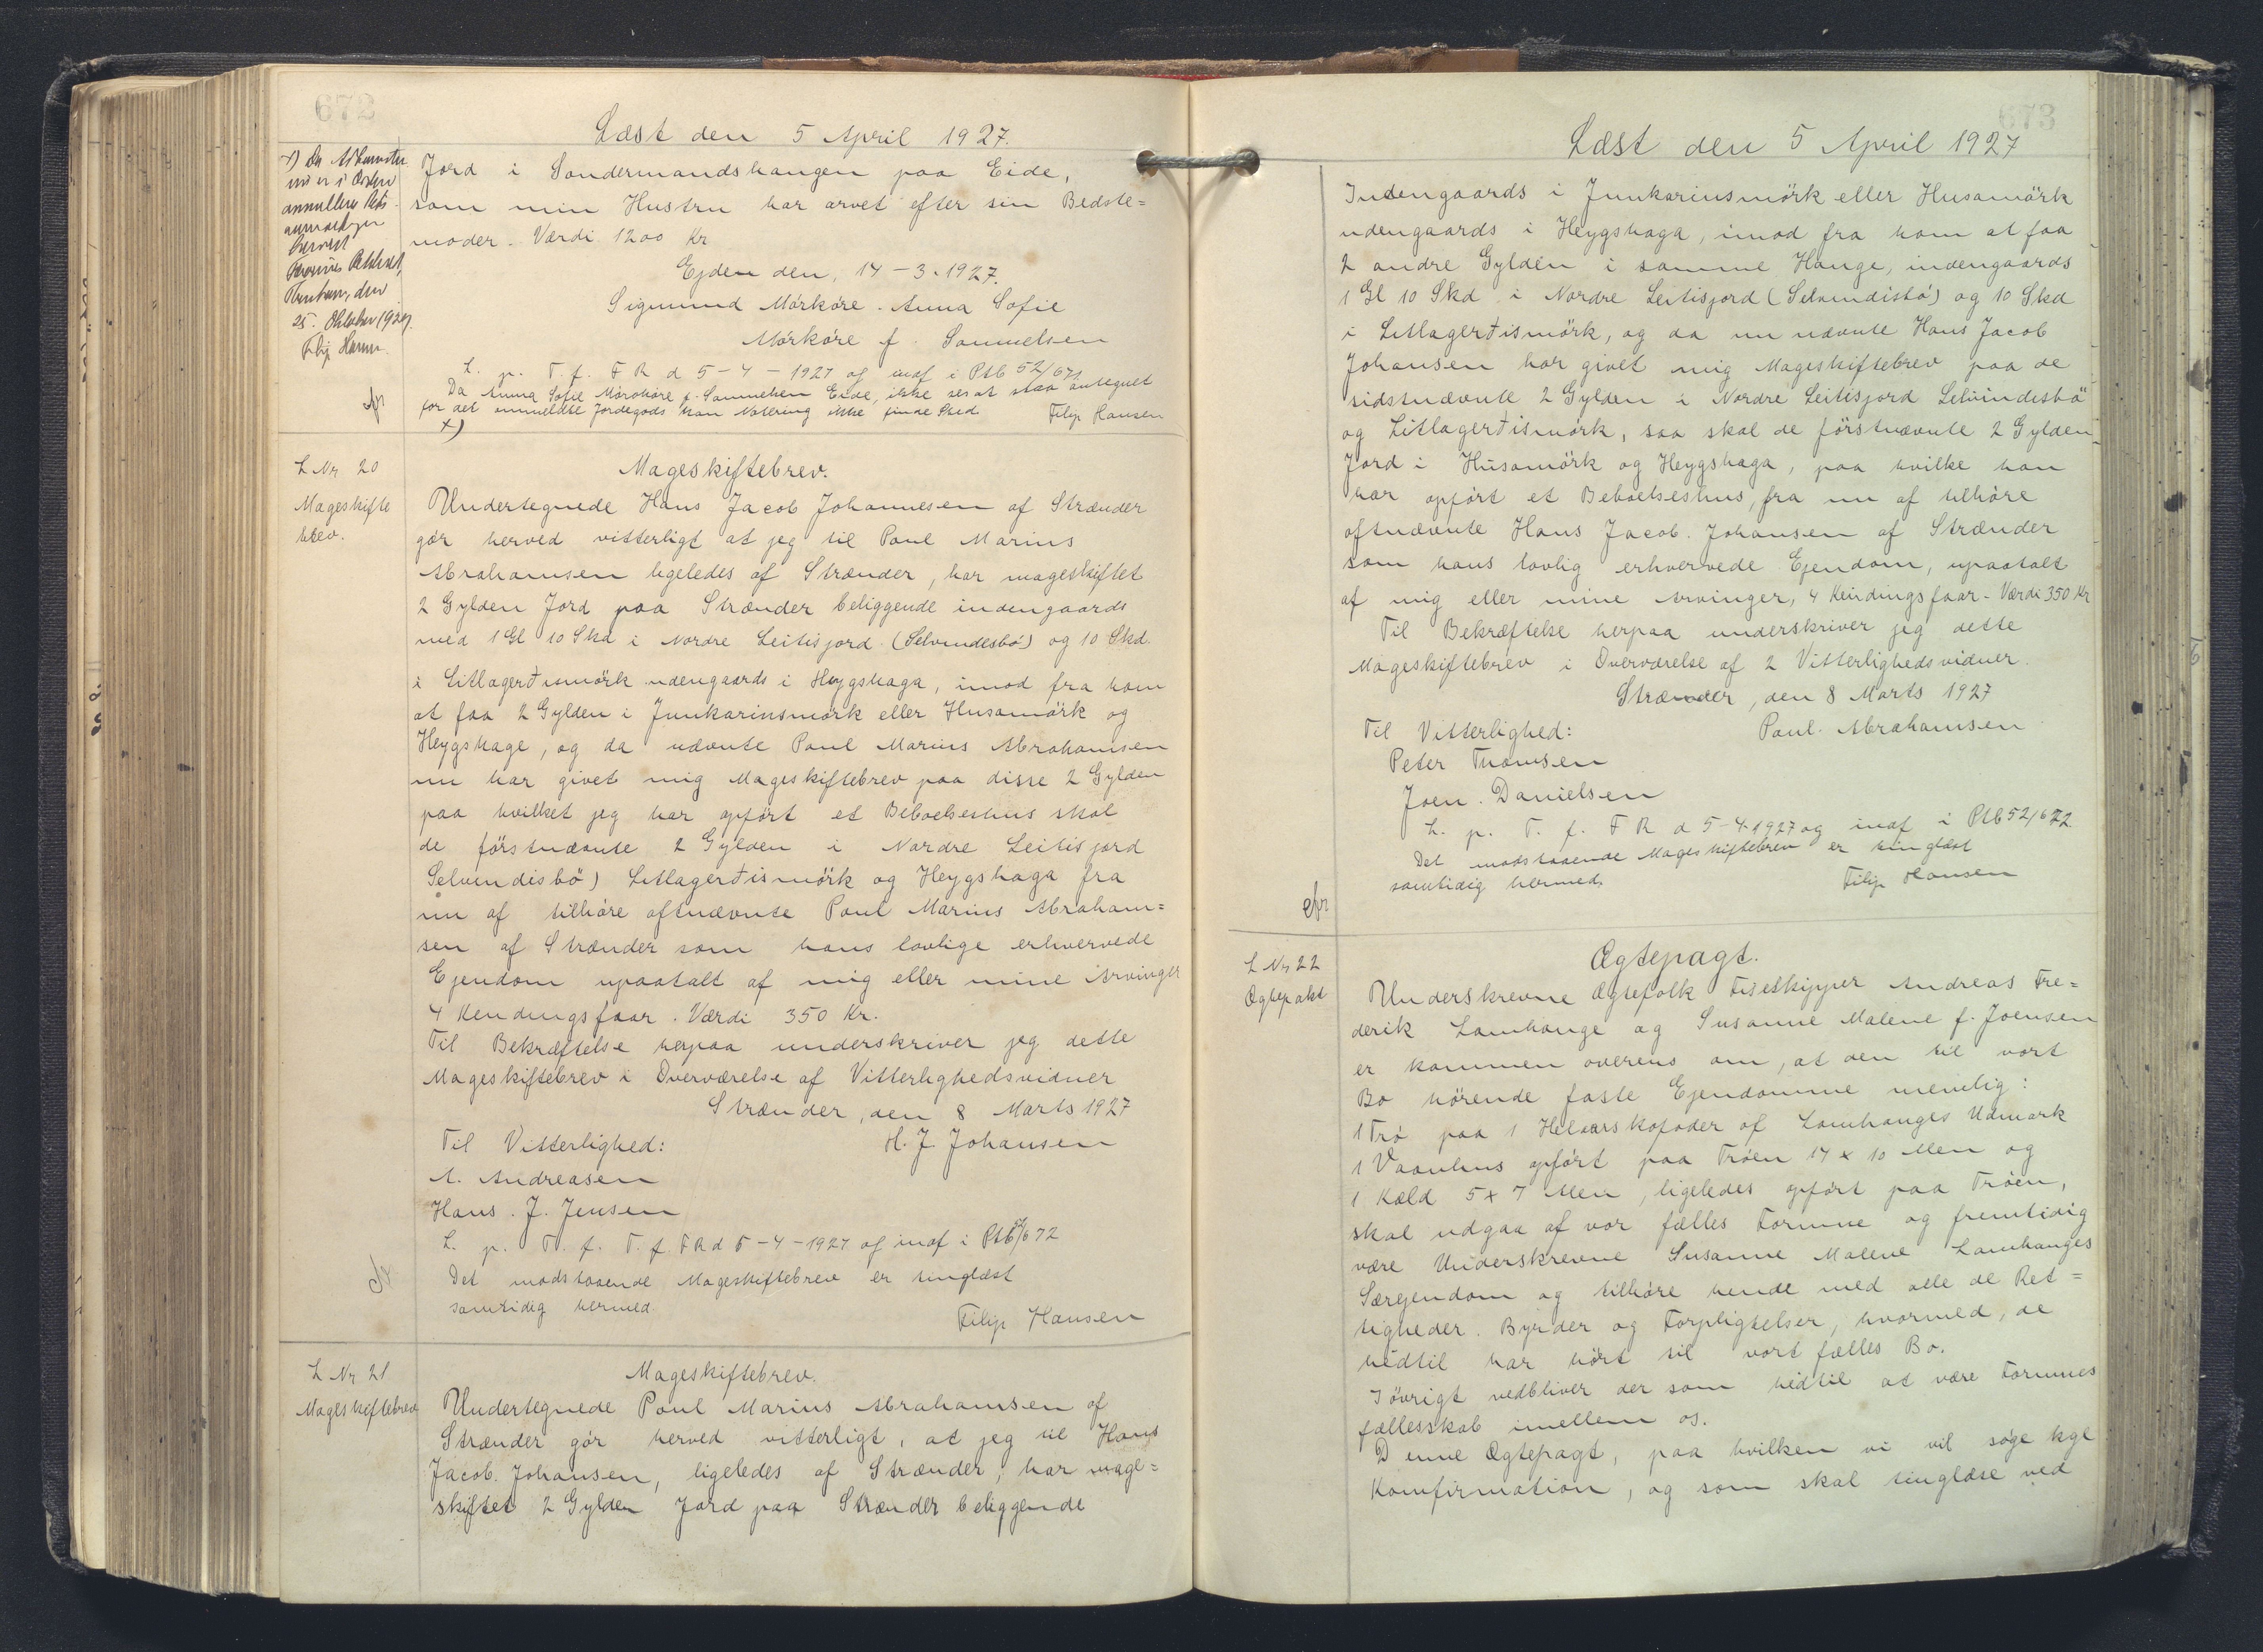 672
Læst den 5 April 1927.
Jord i Sandermandshaugen paa Eide,
som min Hustru har arvet efter sin Bedste=
moder. Værdi 1200 Kr
Ejden den, 14-3-1927.
Sigmund Mørkøre - Anna Sofie
Mørkøre f. Samuelsen
L. p. T. f. F R d 5-4-1927 og indf i Ptb 52/671
Da Anna Sofie Mørkøre f. Samuelsen Eide, ikke ses at staa antegnet
for det anmeldte Jordegods kan Notering ikke finde Sted
Filip Hansen
x)
annullere
25. Oktober 1927.
L Nr 20
Mageskifte
brev.
Mageskiftebrev.
Undertegnede Hans Jacob Johannesen af Strænder
gør herved vitterligt at jeg til Poul Marius
Abrahamsen ligeledes af Strænder, har mageskiftet
2 Gylden Jord paa Strænder beliggende indengaards
med 1 Gl 10 Skd i Nordre Leitisjord (Selvindesbø) og 10 Skd.
i Litlagerðismørk udengaards i Heygshaga, imod fra ham
at faa 2 Gylden i Junkarinsmørk eller Husamørk og
Heygshage, og da nævnte Poul Marius Abrahamsen
nu har givet mig Mageskiftebrev paa disse 2 Gylden
paa hvilket jeg har opført et Beboelseshus skal
de førstnævnte 2 Gylden i Nordre Leitisjord
Selvindisbø) Litlagerðismørk og Heygshaga fra
nu af tilhøre oftnævnte Poul Marius Abraham=
sen af Strænder som hans lovlige erhvervede
Ejendom upaatalt af mig eller mine Arvinger
4 Kendingsfaar. Værdi 350 Kr.
Til Bekræftelse herpaa underskriver jeg dette
Mageskiftebrev i Overværelse af Vitterlighedsvidner
Strænder, den 8 Marts 1927
Til Vitterlighed: H. J. Johansen
A. Andreasen
Hans. J. Jensen
L. p. T. f. T. f. F R d 5-4-1927 og indf i Ptb 52/672
Det modstaaende Mageskiftebrev er tinglæst
samtidig hermed
Filip Hansen
L Nr 21
Mageskiftebrev
Mageskiftebrev.
Undertegnede Poul Marius Abrahamsen af
Strænder gør herved vitterligt, at jeg til Hans
Jacob. Johansen, ligeledes af Strænder, har mage=
skiftet 2 Gylden Jord paa Strænder beliggende
673
Læst den 5 April 1927
Indengaards i Junkarinsmørk eller Husamørk
udengaards i Heygshaga, imod fra ham at faa
2 andre Gylden i samme Hauge, indengaards
1 Gl 10 Skd i Nordre Leitisjord (Selvindisbø) og 10 Skd
i Litlagerðismørk, og da nu nævnte Hans Jacob
Johansen har givet mig Mageskiftebrev paa de
sidstnævnte 2 Gylden i Nordre Leitisjord Selvindesbø
og Litlagerðismørk, saa skal de førstnævnte 2 Gylden
Jord i Húsamörk og Heygshaga, paa hvilke han
har opført et Beboelseshus, fra nu af tilhøre
oftnævnte Hans Jacob. Johansen af Strænder
som hans lovlig erhvervede Ejendom, upaatalt
af mig eller mine Arvinger, 4 Kendingsfaar - Værdi 350 Kr
Til Bekræftelse herpaa underskriver jeg dette
Mageskiftebrev i Overværelse af 2 Vitterlighedsvidner.
Strænder, den 8 Marts 1927
Til Vitterlighed: Paul. Abrahamsen
Peter Thomsen
Joen. Danielsen
L. p. T. f. F R d 5-4-1927 og indf i Ptb 52/672
Det modstaaende Mageskiftebrev er tinglæst
samtidig hermed. Filip Hansen
L Nr 22
Ægtepakt
Ægtepagt.
Underskrevne Ægtefolk Fiskeskipper Andreas Fre=
derik Lamhauge og Susanne Malene f. Joensen
er kommen overens om, at den til vort
Bo hørende faste Ejendomme nemlig:
1 Trø paa 1 Helaarskofoder af Lamhauges Udmark
1 Vaanhus opført paa Trøen 14 x 10 Alen og
1 Kæld 5 x 7 Alen, ligeledes opført paa Trøen,
skal udgaa af vor fælles Formue og fremtidig
være Underskrevne Susanne Malene Lamhauges
Særejendom og tilhøre hende med alle de Ret=
tigheder. Byrder og Forpligtelser, hvormed, de
hidtil har hørt til vort fælles Bo.
Iøvrigt vedbliver der som hidtil at være Formues
fællesskab imellem os.
Denne Ægtepagt, paa hvilken vi vil søge kgl
Komfirmation, og som skal tinglæse ved